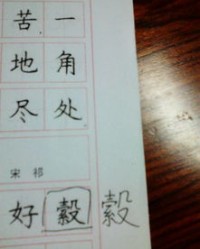 苦一
地角
尽处
宋祁
好縠 縠